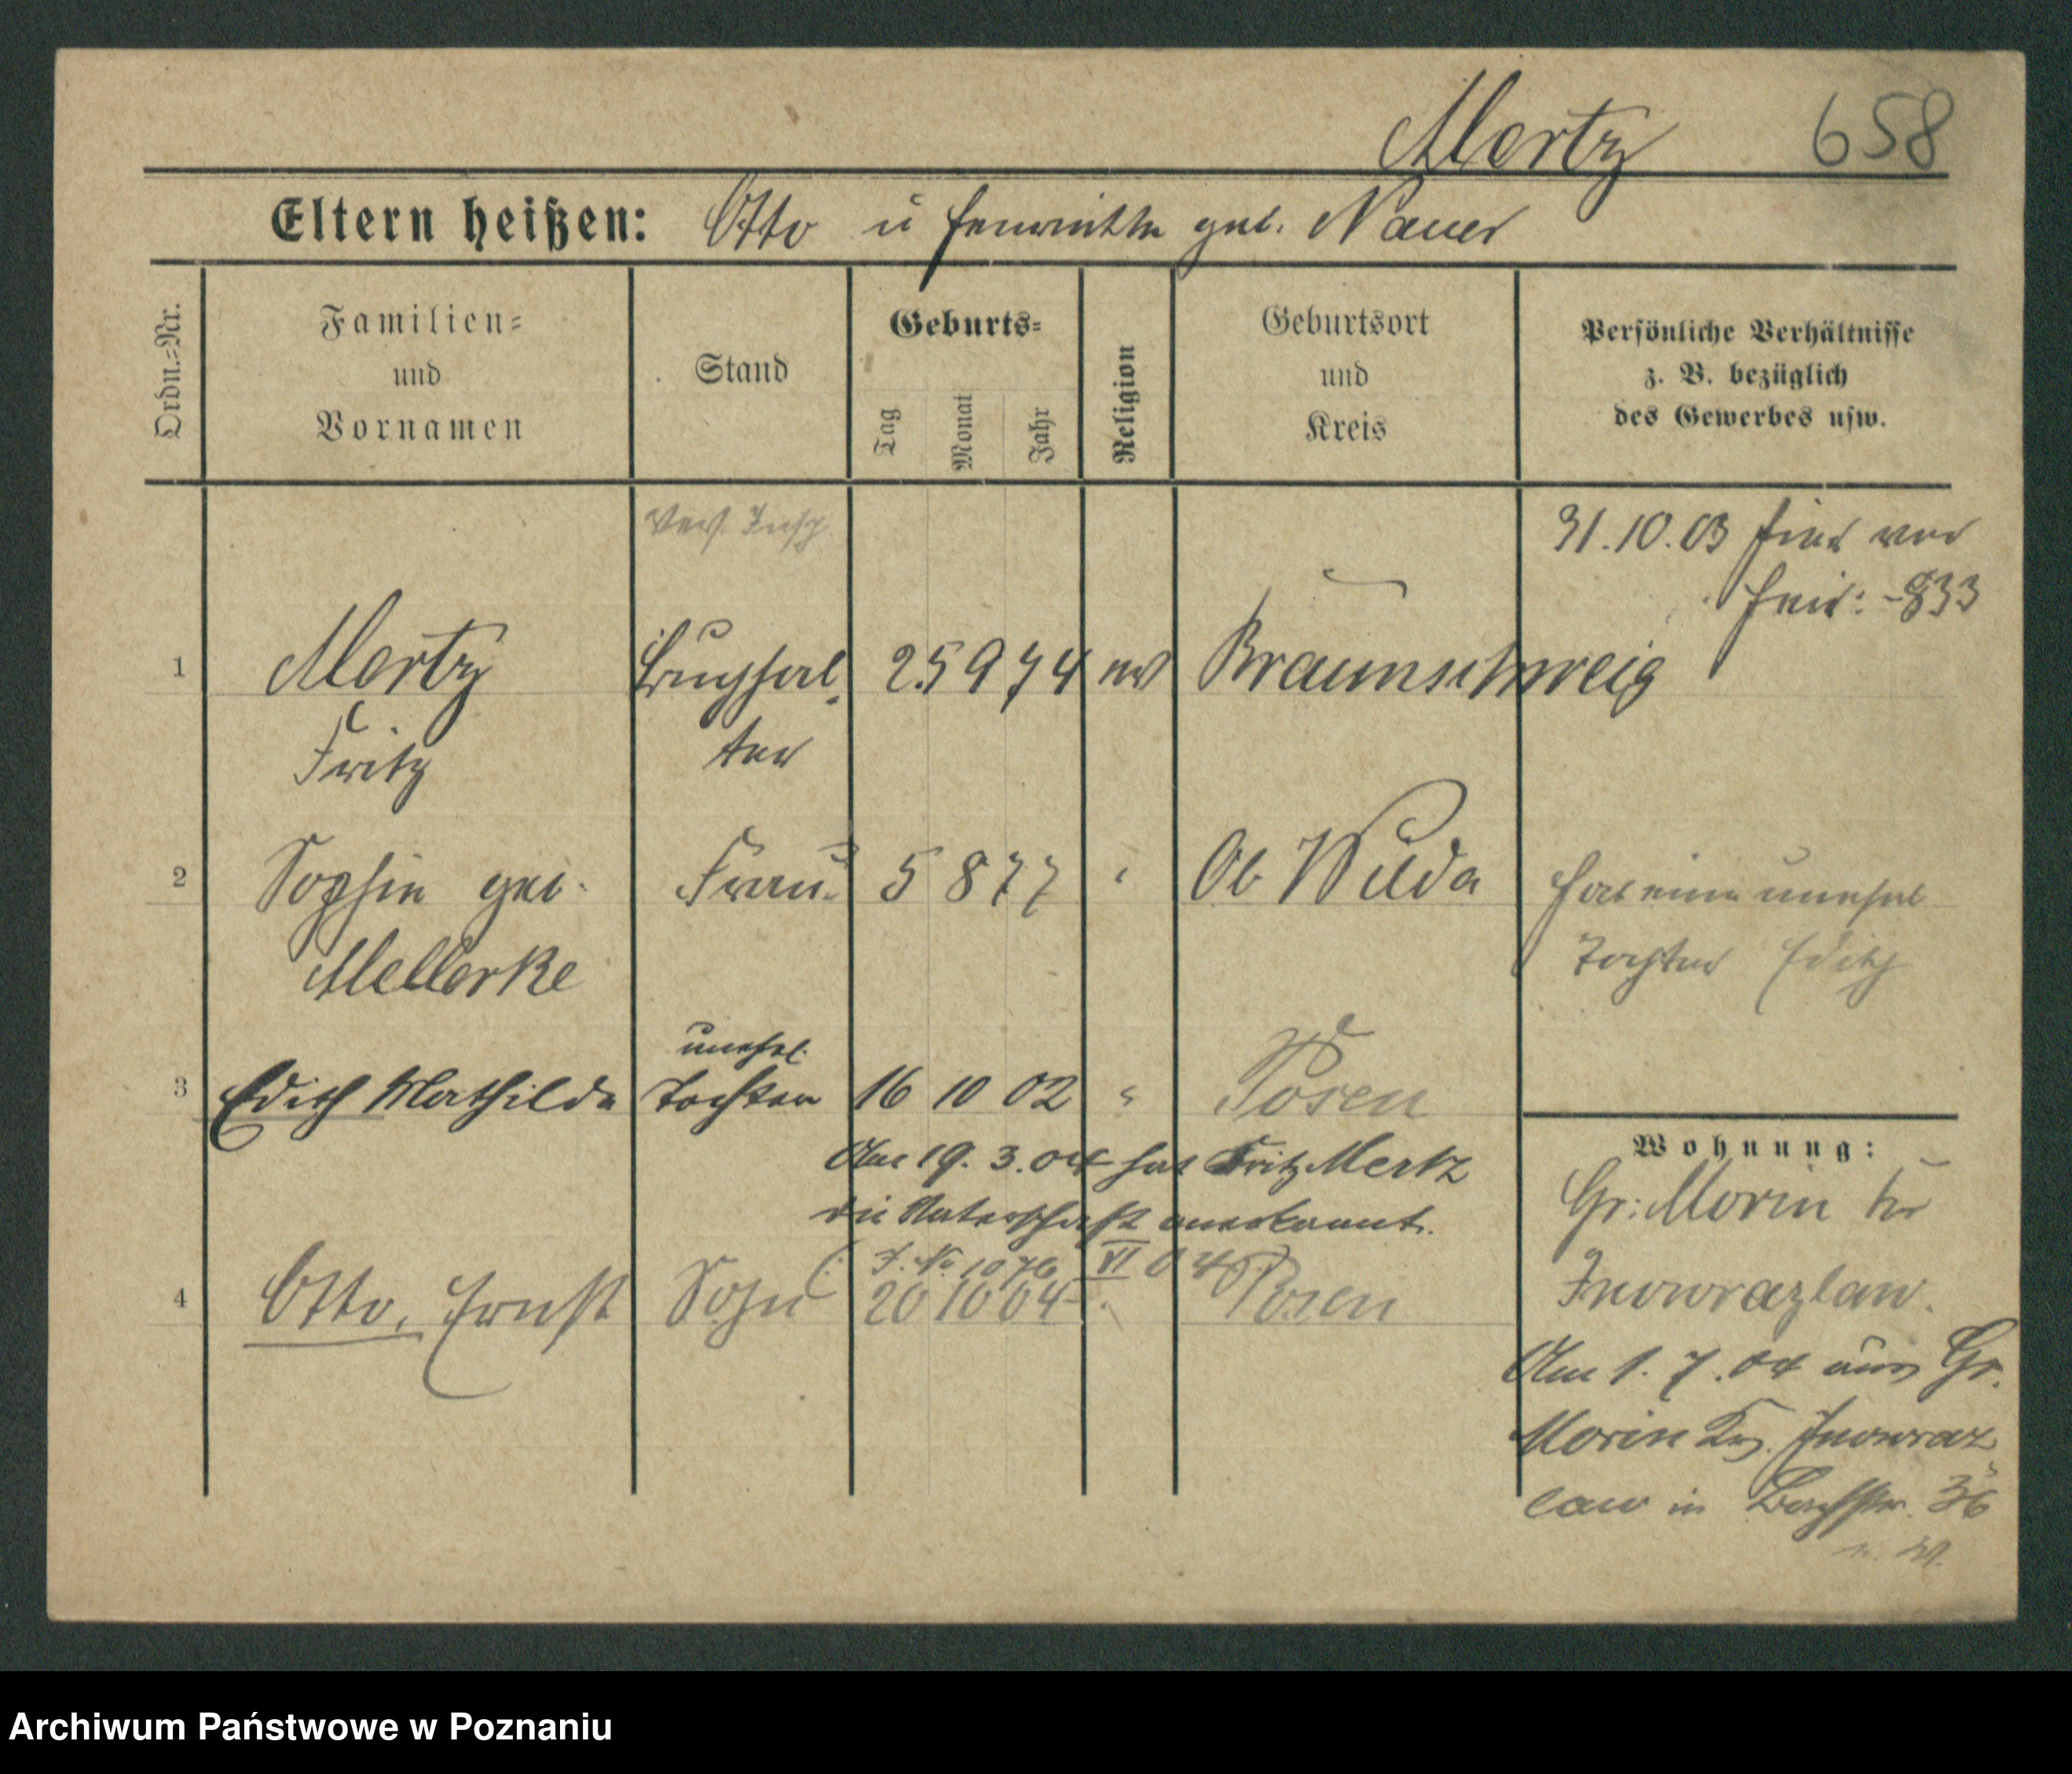 Mertz 658
Eltern heißen: Otto u Henriette geb. Nauer
Ordn.=Nr.
Familien=
und
Vornamen
Stand
Geburts=
Tag
Monat
Jahr
Religion
Geburtsort
und
Kreis
Persönliche Verhältnisse
z. B. bezüglich
des Gewerbes usw.
Vers. Insp
31.10.03 hier vor
heir: 833
1 Mertz Buchhal- 25 9 74 ev Braunschweig
Fritz ter
2 Sophie geb. Frau 5 8 77 " Ob Wilda hat eine unehel
Mellerke Tochter Edith
unehel.
3 Edith Mathilde Tochter 16 10 02 " Posen
Am 19. 3. 04 hat Fritz Mertz
die Vaterschaft anerkannt.
J. No 1076 VI 04
4 Otto, Ernst Sohn 20 10 04 Posen
Wohnung:
Gr: Morin Kr
Inowrazlaw.
Am 1. 7. 04 aus Gr.
Morin Krs. Inowraz
law in Bachstr. 36
Archiwum Państwowe w Poznaniu